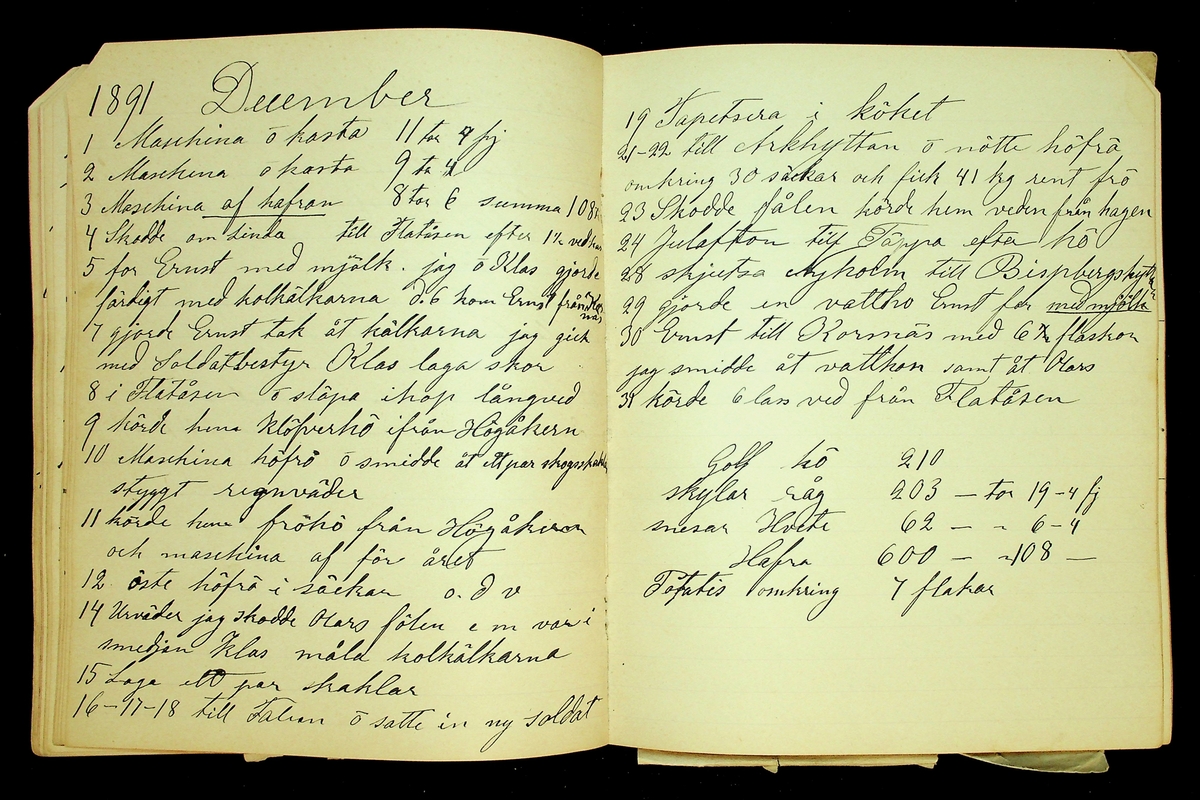 1891 December
1 Maschina ō kasta 11 tor 4 fj
2 Maschina ō kasta 9 to 4
3 Maschina af hafran 8 tor 6 summa 108
4 Skodde om Linda till Flatåsen efter 1½ vedkar
5 for Ernst med mjölk. jag ō Klas gjorde
färdigt med kolkälkarna d. 6 kom Ernst från
7 gjorde Ernst tak åt kälkarna jag gick
med Soldatbestyr Klas laga skor
8 i Flatåsen ō släpa ihop långved
9 körde hem Klöfverhö ifrån Högåkern
10 Maschina höfrö ō smidde åt ett par
styggt regnväder
11 körde hem fröhö från Högåkern
och maschina af för året
12 öste höfrö i säckar o. d v
14 Urväder jag skodde Olars fölen e m var i
smedjan Klas måla kolkälkarna
15 Laga ett par skaklar
16-17-18 till Falun ō satte in ny soldat
19 Tapetsera i köket
21-22 till Arkhyttan ō nötte höfrö
omkring 30 säckar och fick 41 kg rent frö
23 Skodde fålen körde hem veden från hagen
24 Julafton till Täppa efter hö
28 skjutsa Nyholm till Bispbergshyttan
29 gjorde en vattho Ernst for med mjölk
30 Ernst till Kornäs med 6 fläskon
jag smidde åt vatthon samt åt Olars
31 körde 6 lass ved från Flatåsen
Golf hö 210
skylar råg 203 — tor 19-4 fj
snesar Hvete 62 — " 6-4
Hafra 600 — " 108 —
Potatis omkring 7 flakar